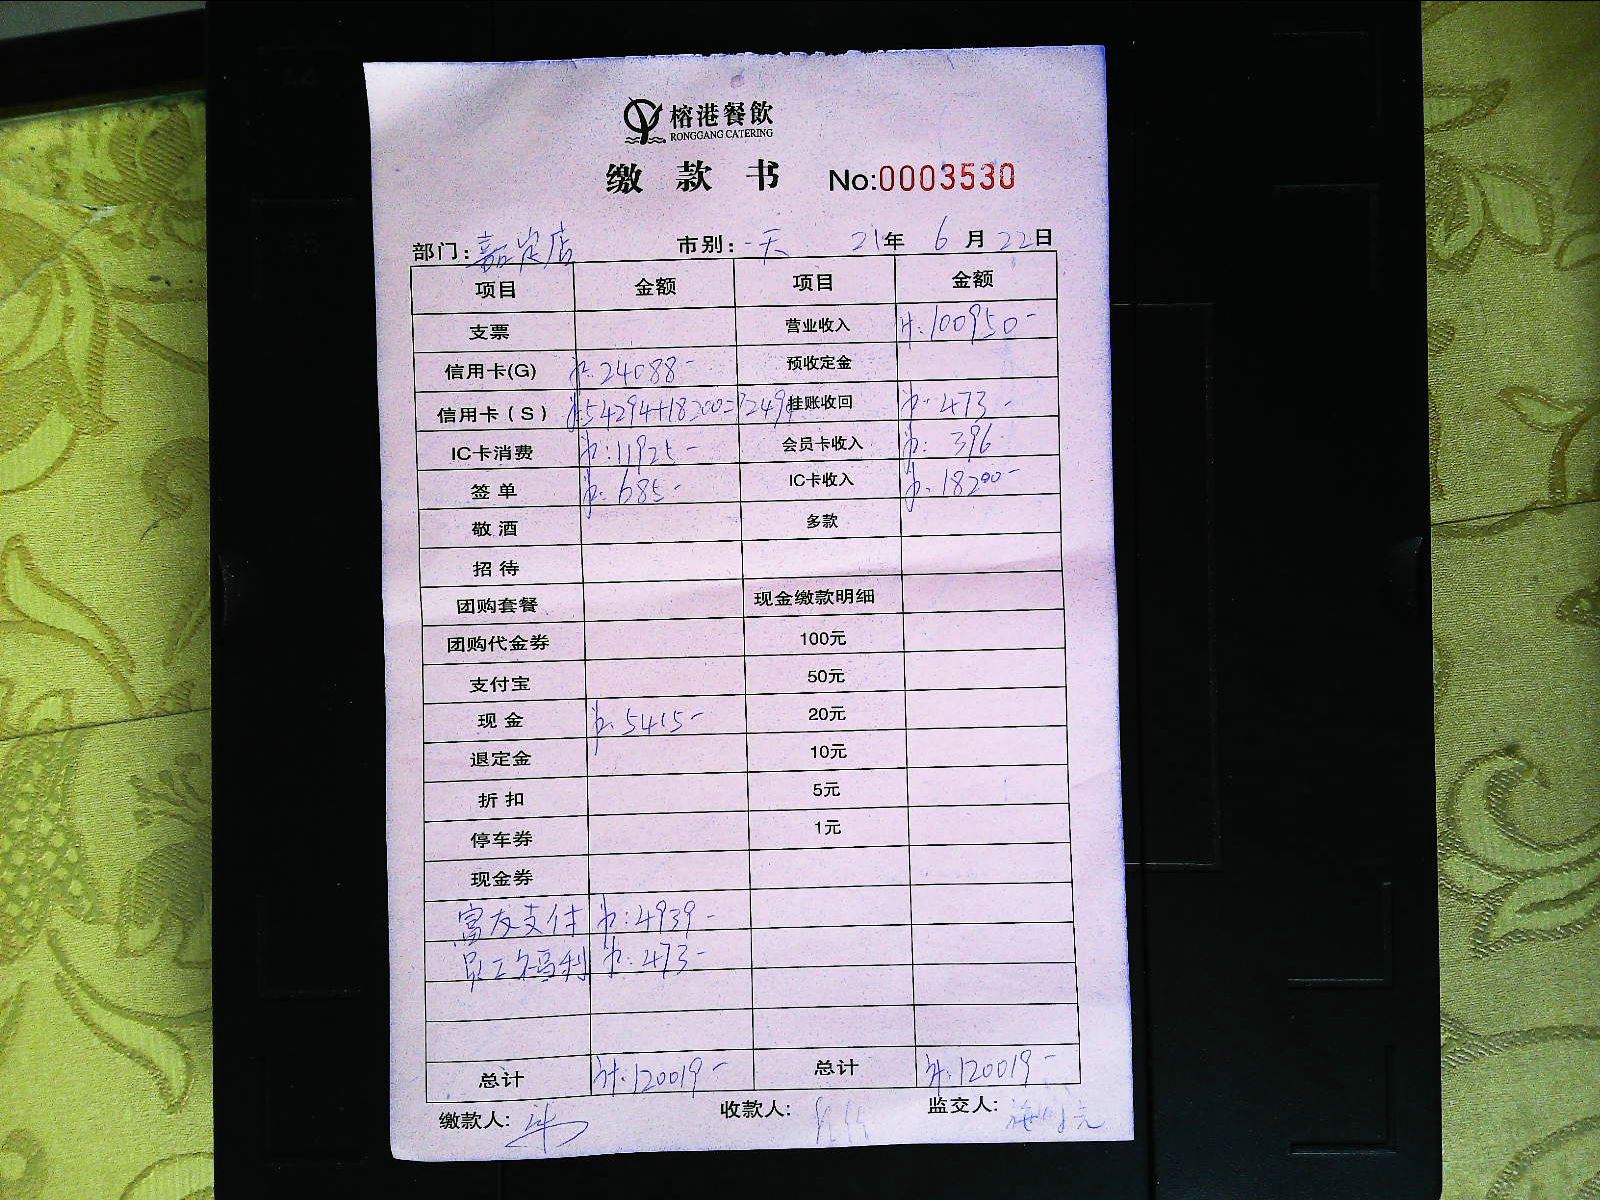 榕港餐飲
RONGGANG CATERING
缴款书 No:0003530
部门: 嘉定店 市别: 一天 21年 6月 22日
项目 金额 项目 金额
支票 营业收入 计:100950-
信用卡(G) 计:24088- 预收定金
信用卡(S) 54294+18200=72494 挂账收回 473-
IC卡消费 11925- 会员卡收入 396-
签单 685- IC卡收入 18200-
敬酒 多款
招待
团购套餐 现金缴款明细
团购代金券 100元
支付宝 50元
现金 5415- 20元
退定金 10元
折扣 5元
停车券 1元
现金券
富友支付 4939-
员工福利 473-
总计 计:120019- 总计 计:120019-
缴款人: 收款人: 监交人: